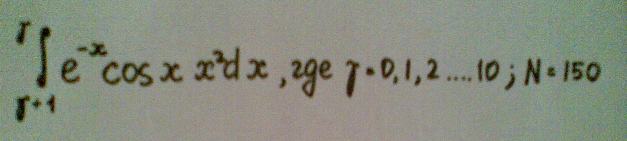 ∫_{γ+1}^{γ} e^{-x} cos x x² dx, где γ = 0, 1, 2 .... 10; N = 150